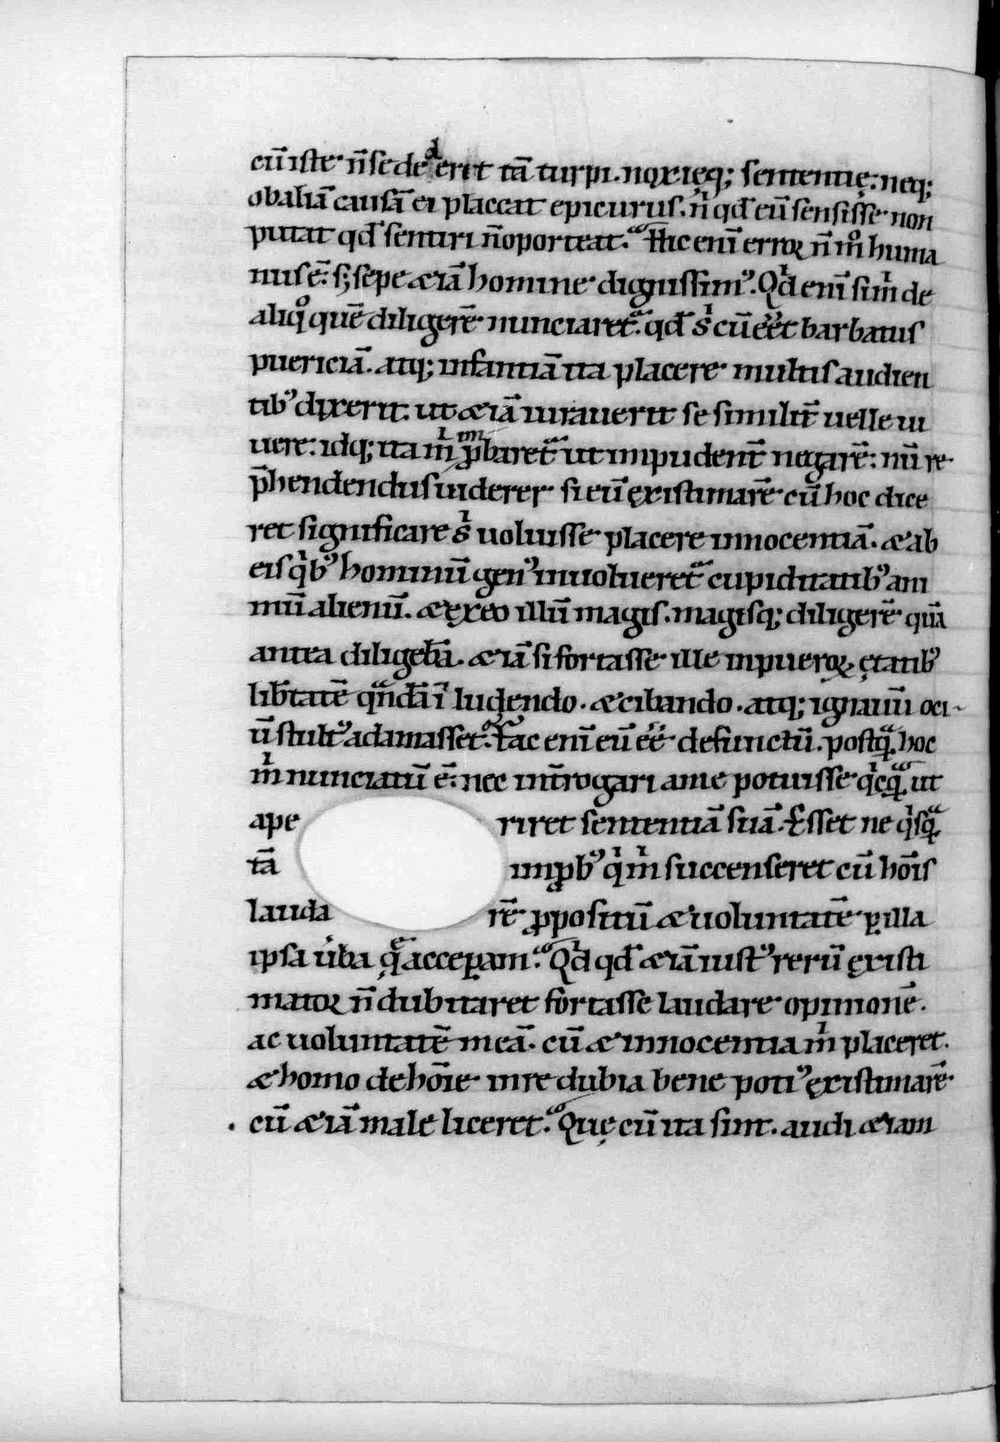 cū iste n̄ se dedˡerit tā turpi. noxięq; sententię: neq;
ob aliā causā ei placeat epicurus. n̄ qđ eū sensisse non
putat qđ sentiri n̄ oporteat. Hic enī error n̄ mͦ huma
nus ē: s; sepe & iā homine dignissimꝰ. Qͥd enī si mͥ de
aliqͦ quē diligerē nunciaret᷑. qđ sͥ cū eēt barbatus
puericiā. atq; infantiā ita placere multis audien
tibꝰ dixerit: ut & iā iurauerit se similit̄ uelle ui
uere: idq; ita mͥ p̄baret᷑ ut impudent̄ negarē: nū re
p̄hendendus uiderer si eū existimarē cū hoc dice
ret significare sͥ uoluisse placere innocentiā. & ab
eis qͥbꝰ hominū genꝰ inuolueret᷑ cupiditatibꝰ ani
mū alienū. & ex eo illū magis. magisq; diligerē quā
antea diligebā. & iā si fortasse ille in pueroꝝ ętatibꝰ
lib̄tatē qͣndā ī ludendo. & cibando. atq; ignauū oci
ū stultꝰ adamasset. Fac enī eū eē defunctū. postqͣ hoc
mͥ nunciatū ē: nec int̄rogari a me potuisse qͥcqͣ ut
ape riret sententiā suā. Esset ne qͥsqͣ
tā inꝓbꝰ qͥ mͥ succenseret cū hoīs
lauda rē ꝓpositū & uoluntatē ꝑ illa
ipsa ūba quę acceꝑam. Qͥd qđ & iā iustꝰ rerū existi
mator n̄ dubitaret fortasse laudare opinionē.
ac uoluntatē meā. cū & innocentia mͥ placeret.
& homo de hoīe in re dubia bene potiꝰ existimarē
cū & iā male liceret. Quę cū ita sint. audi & iam